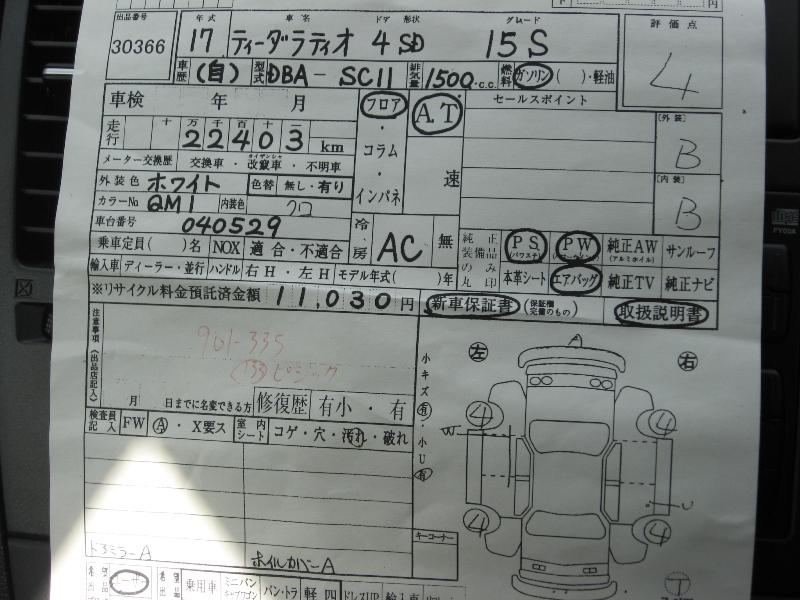 出品番号 年式 車名 ドア 形状 グレード 評価点
30366 17 ティーダラティオ 4 SD 15S 4
車歴 (自) 型式 DBA-SC11 排気量 1500 c.c. 燃料 ガソリン ( )・軽油
車検 年 月 フロア A.T セールスポイント
走行 十 万 千 百 十 一 [外装]
22403 km コラム B
メーター交換歴 交換車・改竄車・不明車 速 [内装]
外装色 ホワイト 色替 無し・有り インパネ B
カラーNo QM1 内装色 クロ
車台番号 040529 冷房 AC 無 純正装備品のみ丸印 PS PW 純正AW サンルーフ
(パワステ) (アルミホイル)
乗車定員( )名 NOX 適合・不適合 本革シート エアバッグ 純正TV 純正ナビ
輸入車 ディーラー・並行 ハンドル 右H・左H モデル年式( )年
※リサイクル料金預託済金額 11,030 円 新車保証書 (保証欄完備のもの) 取扱説明書
注意事項(出品店記入)
901-335
左 右
小キズ有・小U有
月 日までに名変できる方 修復歴 有小・有
検査員記入 FW A・X要ス 室内シート コゲ・穴・汚れ・破れ
4 4
W U
4 4
キーコーナー
ドアミラーA ホイルカバーA
乗用車 ミニバン バン・トラ 軽四 ドレスUP 輸入車